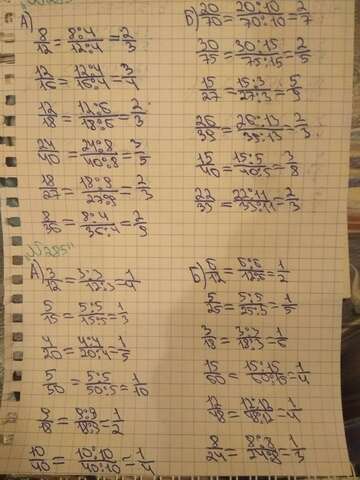 А)
8/12 = 8:4/12:4 = 2/3
12/16 = 12:4/16:4 = 3/4
12/18 = 12:6/18:6 = 2/3
24/40 = 24:8/40:8 = 3/5
18/27 = 18:9/27:9 = 2/3
8/36 = 8:4/36:4 = 2/9
Б)
20/70 = 20:10/70:10 = 2/7
30/75 = 30:15/75:15 = 2/5
15/27 = 15:3/27:3 = 5/9
26/39 = 26:13/39:13 = 2/3
15/40 = 15:5/40:5 = 3/8
22/33 = 22:11/33:11 = 2/3
А)
3/12 = 3:3/12:3 = 1/4
5/15 = 5:5/15:5 = 1/3
4/20 = 4:4/20:4 = 1/5
5/50 = 5:5/50:5 = 1/10
9/18 = 9:9/18:9 = 1/2
10/40 = 10:10/40:10 = 1/4
Б)
6/12 = 6:6/12:6 = 1/2
5/25 = 5:5/25:5 = 1/5
15/60 = 15:15/60:15 = 1/4
12/48 = 12:12/48:12 = 1/4
8/24 = 8:8/24:8 = 1/3